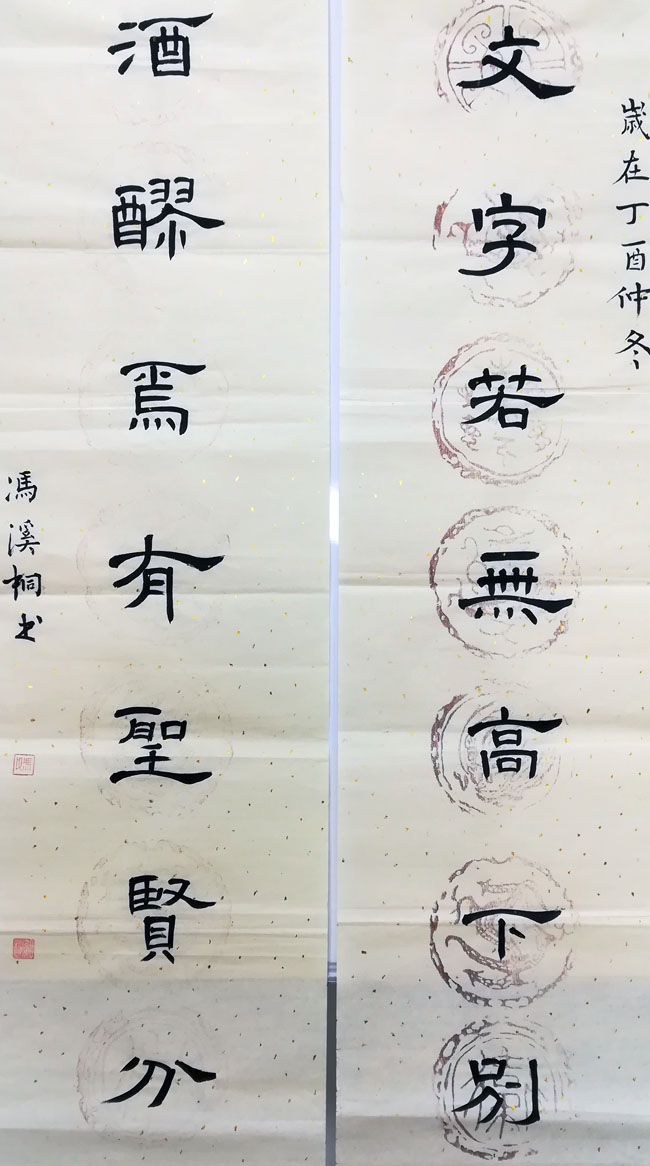 歲在丁酉仲冬
文字若無高下別
酒醪焉有聖賢分
馮溪桐书